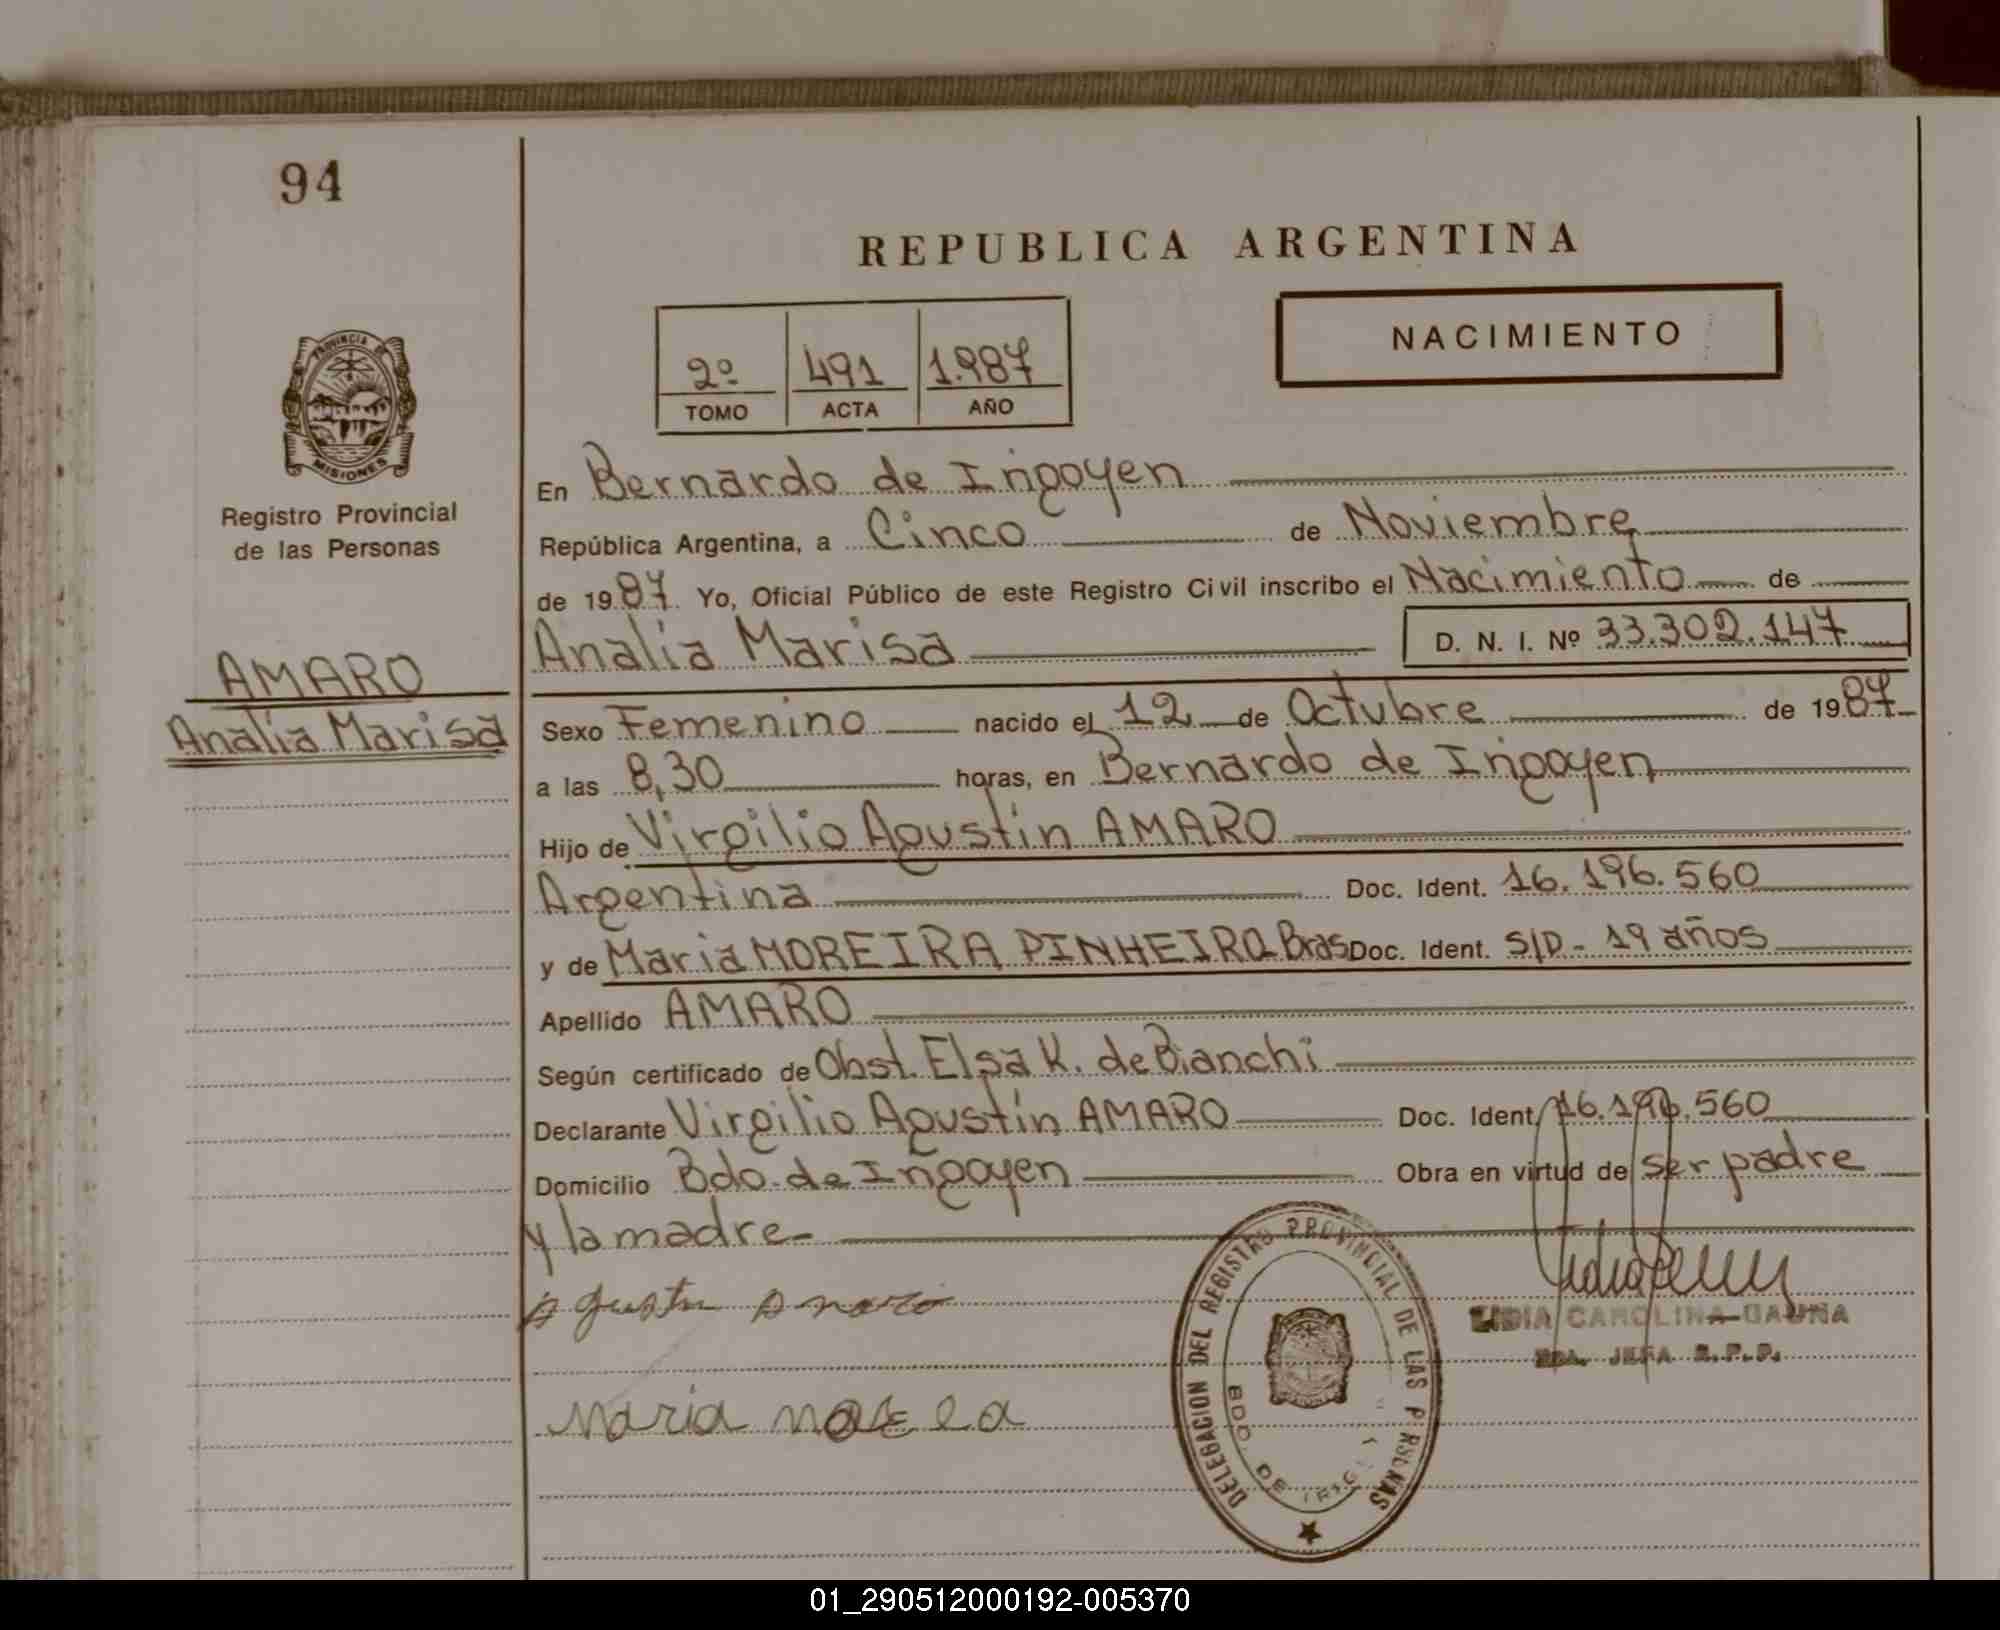 94
REPUBLICA ARGENTINA
NACIMIENTO
2º 491 1.987
TOMO ACTA AÑO
PROVINCIA DE
MISIONES
Registro Provincial
de las Personas
AMARO
Analía Marisa
En Bernardo de Irigoyen
República Argentina, a Cinco de Noviembre
de 1987. Yo, Oficial Público de este Registro Civil inscribo el Nacimiento de
Analía Marisa D. N. I. Nº 33.302.147
Sexo Femenino nacido el 12 de Octubre de 1987
a las 8,30 horas, en Bernardo de Irigoyen
Hijo de Virgilio Agustín AMARO
Argentina Doc. Ident. 16.196.560
y de María MOREIRA PINHEIRO Bras Doc. Ident. S/D - 19 años
Apellido AMARO
Según certificado de Obst. Elsa K. de Bianchi
Declarante Virgilio Agustín AMARO Doc. Ident. 16.196.560
Domicilio Bdo. de Irigoyen Obra en virtud de ser padre
y la madre
Agustin Amaro
LIDIA CAROLINA GAUNA
JEFA R.P.P.
Maria
DELEGACION DEL REGISTRO PROVINCIAL DE LAS PERSONAS
BDO. DE IRIG
01_290512000192-005370